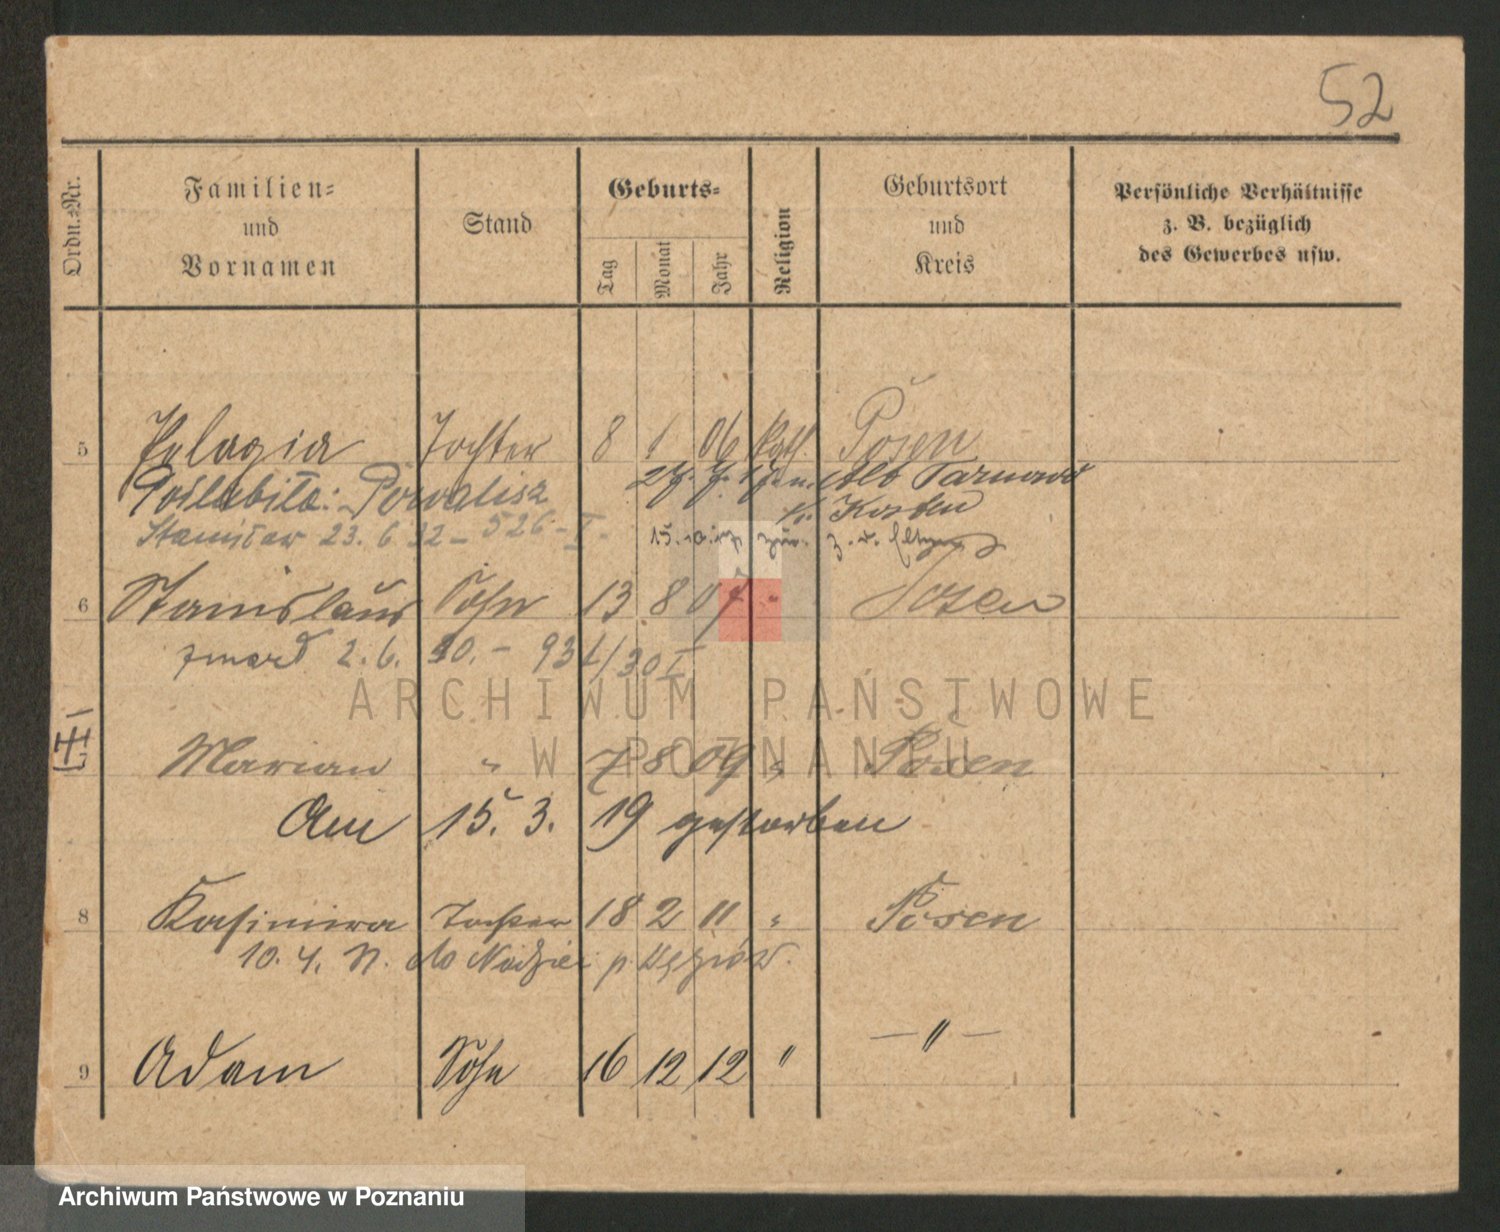 52
Ordn.=Nr.
Familien=
und
Vornamen
Stand
Geburts=
Tag
Monat
Jahr
Religion
Geburtsort
und
Kreis
Persönliche Verhältnisse
z. B. bezüglich
des Gewerbes usw.
5 Pelagia Tochter 8 1 06 kath. Posen
Poślubiła: 27. 7. 17 Tarnowo
Stanisław 23. 6 32 – 526 – I.
6 Stanislaus Sohn 13 8 07 " Posen
zmarł 2. 6. 30. – 934/30 I
III
Marian " 7 8 09 " Posen
Am 15. 3. 19 gestorben
8 Kasimira Tochter 18 2 11 " Posen
10. 4. do p.
9 Adam Sohn 16 12 12 " — " —
ARCHIWUM PAŃSTWOWE
W POZNANIU
Archiwum Państwowe w Poznaniu